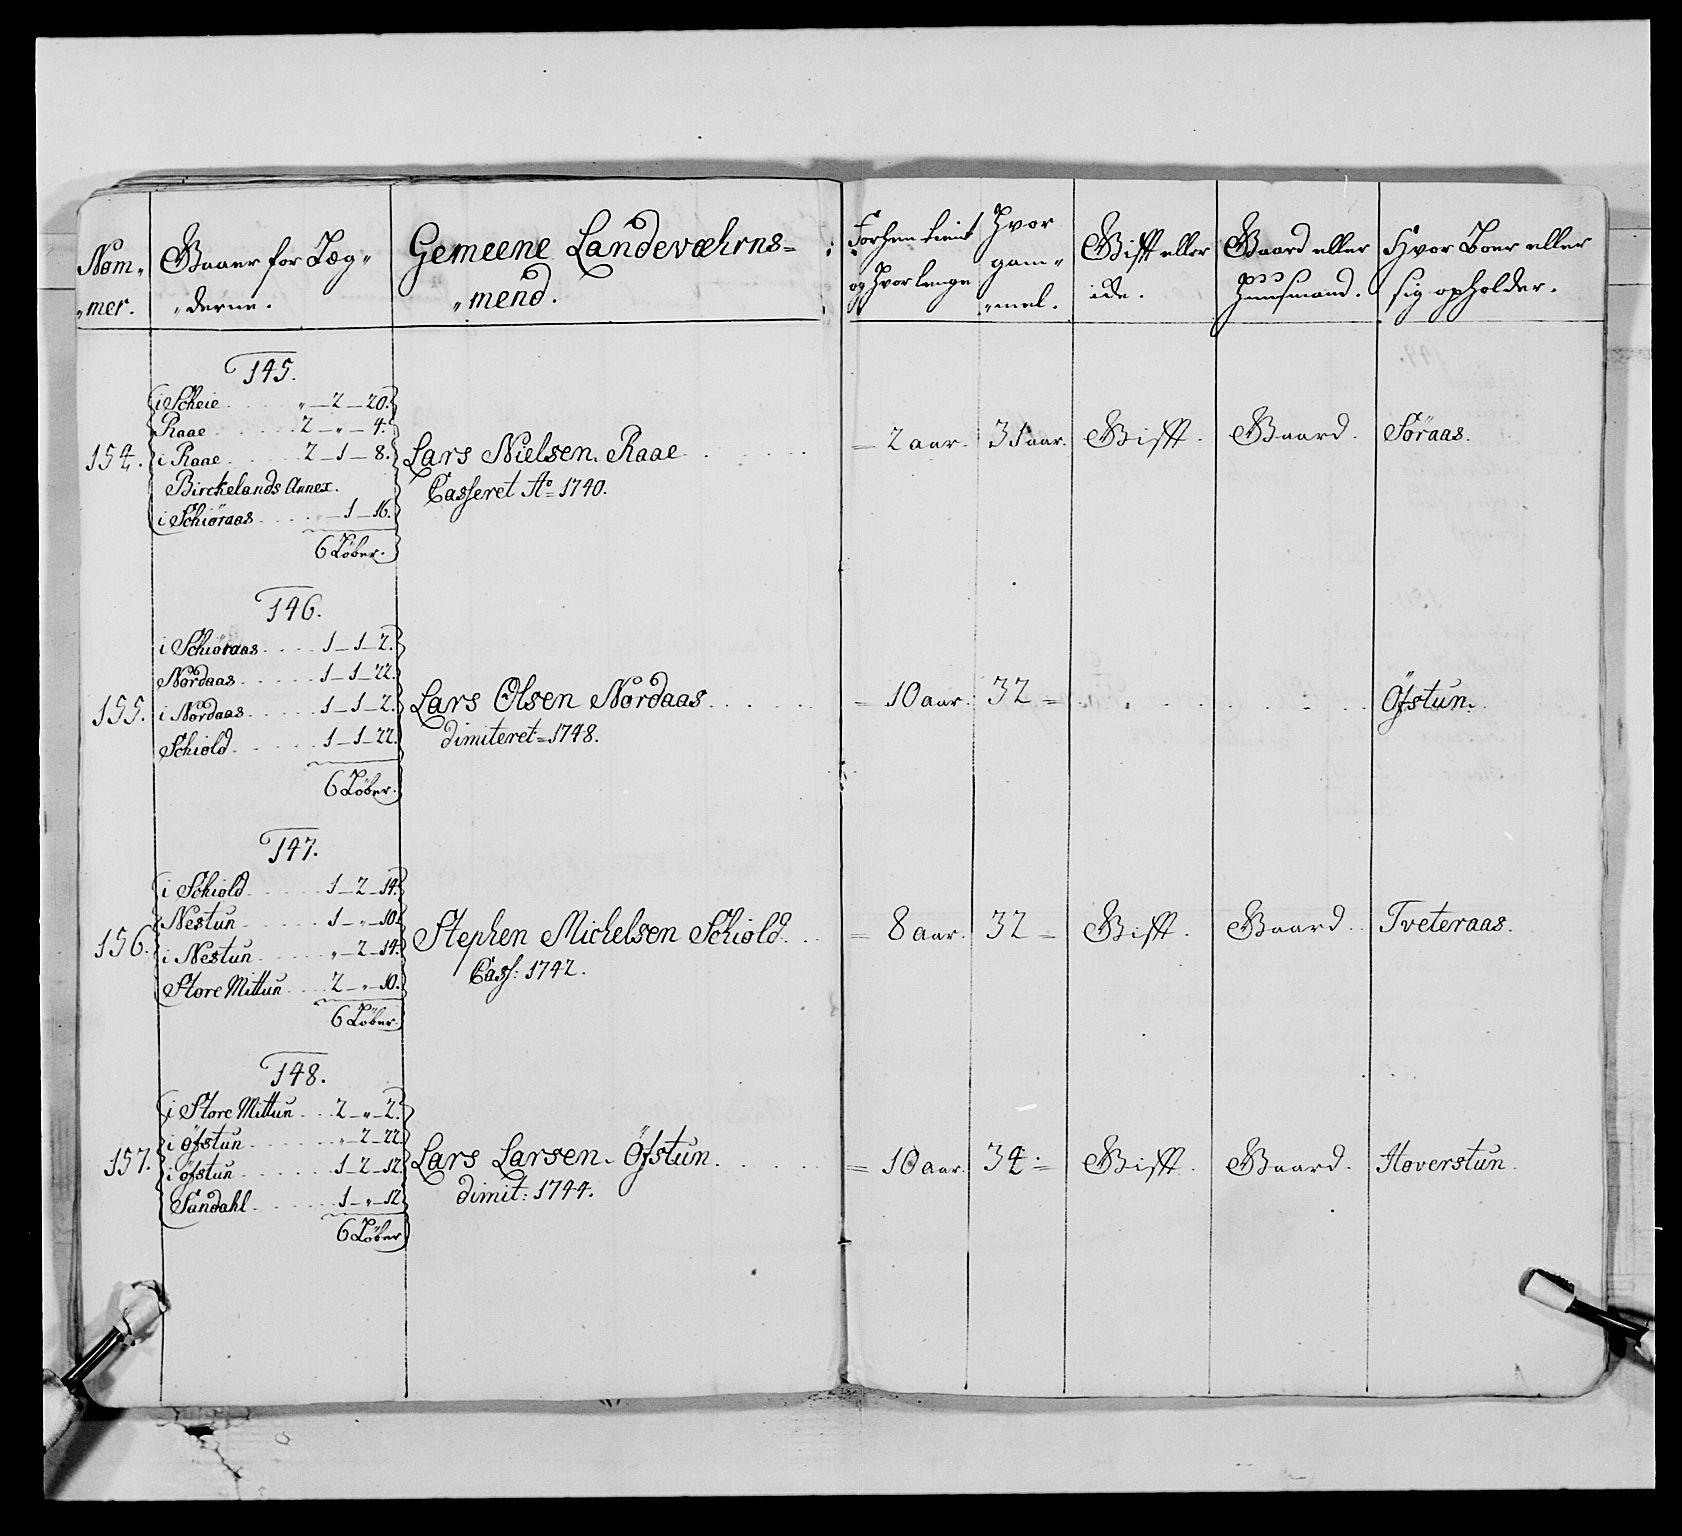 Nøm„ „mer.
Gaaer for Læg„ „derne.
Gemeene Landeværns= „mend.
Forhen tient og Hvor lenge
Hvor gam„ „mel.
Gift eller ide.
Gaard eller Huusmand.
Hvor Boer eller sig opholder.
145.
i Scheie . . . . „ — 2 — 20.
Raae . . . . 2 — „ — 4.
154. i Raae . . . . 2 — 1 — 8. Lars Nielsen Raae . . . = 2 aar. 31 aar. Gift. Gaard. Söraas.
Birckelands Annex. Casseret Ao = 1740.
i Schiöraas . . . . „ — 1 — 16.
6 Løber.
146.
i Schiöraas . . . . 1 — 1 — 2.
Nordaas . . . . 1 — 1 — 22.
155. i Nordaas . . . . 1 — 1 — 2. Lars Olsen Nordaas . . . . = 10 aar. 32 = . . . . . . Öfstun.
Schiold . . . . 1 — 1 — 22. dimiteret = 1748.
6 Løber.
147.
i Schiold . . . . 1 — 2 — 14.
Nestun . . . . 1 — „ — 10.
156. i Nestun . . . . „ — 2 — 14. Stephen Michelsen Schiold . . . = 8 aar. 32 = Gift. Gaard. Tveteraas.
Store Mittun . . . 2 — „ — 10. Cass: 1742.
6 Løber.
148.
i Store Mittun . . . 2 — „ — 2.
i Öfstun . . . . „ — 2 — 22.
157. i Öfstun . . . . 1 — 2 — 12. Lars Larsen Öfstun . . . . = 10 aar. 34 = Gift. Gaard. Hoverstun.
Sandahl . . . . 1 — „ — 12 dimit: 1744.
6 Løber